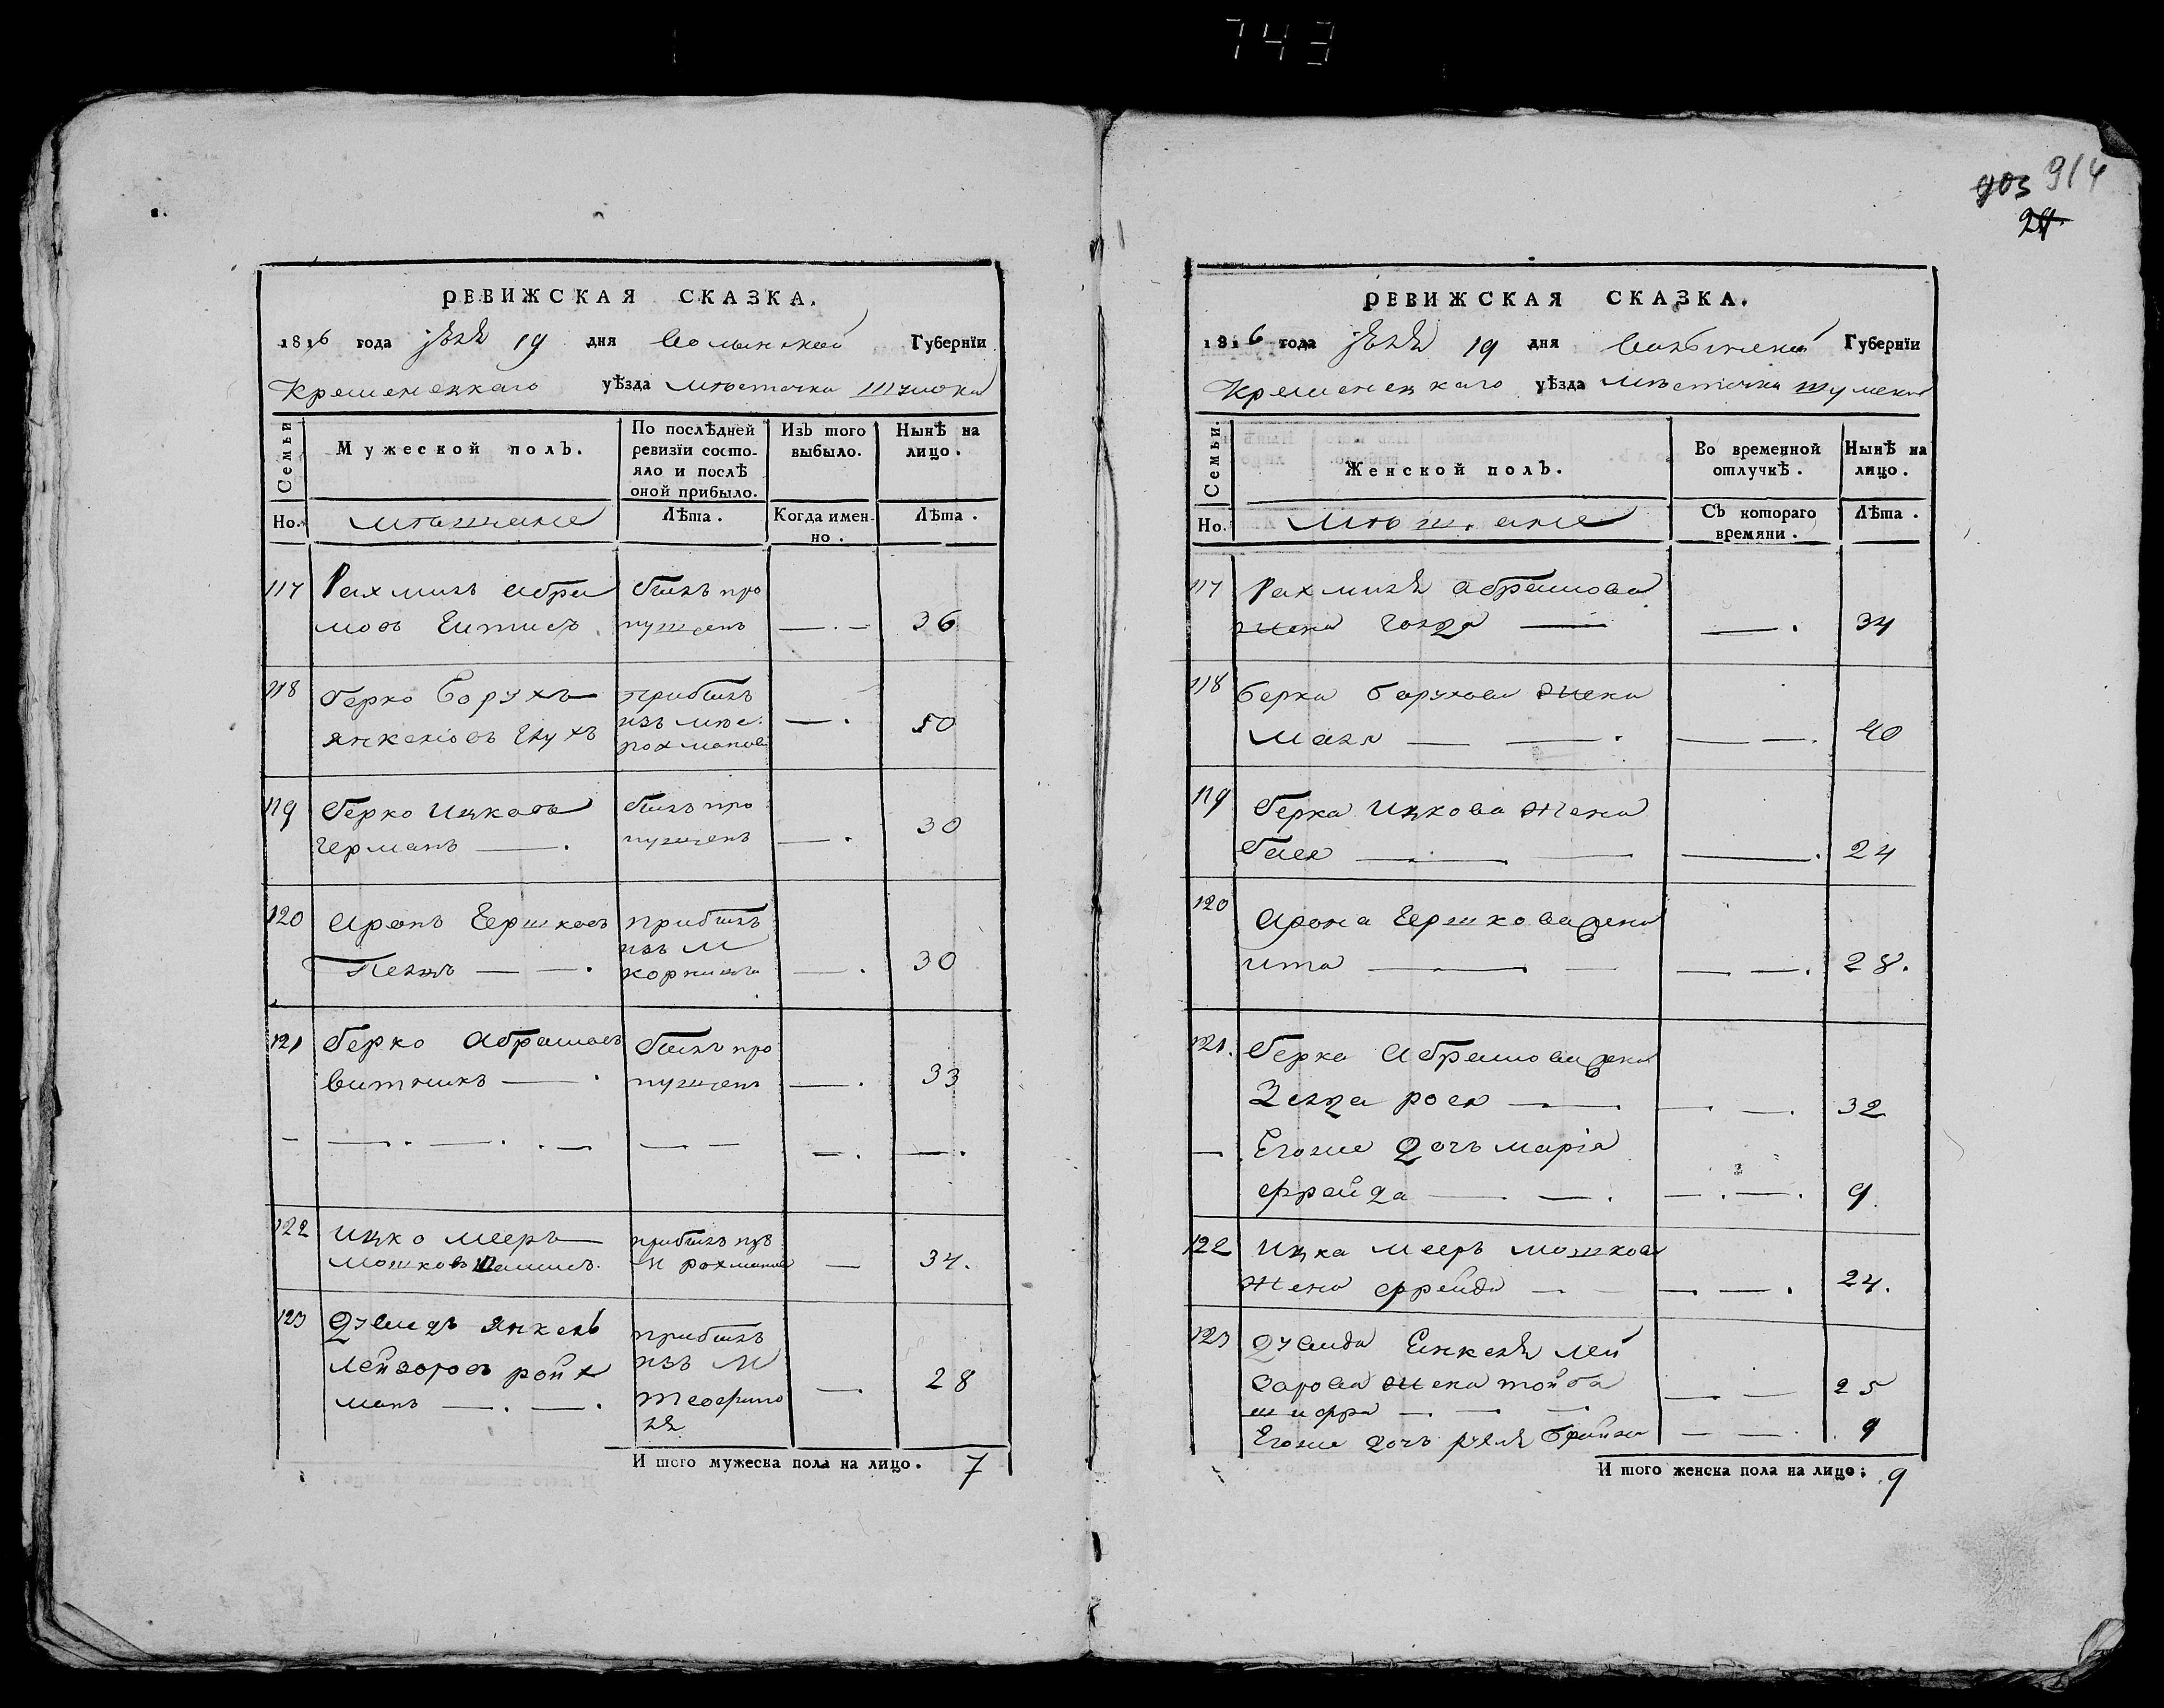 743
903 914
24
РЕВИЖСКАЯ СКАЗКА.
1816 года іюля 19 дня Волынской Губернїи
Кременецкаго уѣзда мѣстечка Шумска
Семьи
Мужеской полЪ.
По послѣдней ревизїи состо-
яло и послѣ
оной прибыло.
ИзЪ того
выбыло.
НынѣЪ на
лицо.
Но.
мѣщане
Лѣта.
Когда имен-
но.
Лѣта.
117 Рахмиль Абра былъ про
мовъ пущенъ — . — 36
118 Берко Борухъ прибылъ
Янкелiовъ изъ мѣс. — . 50
Рохманова
119 Берко Ицковъ былъ про
Германъ — . пущенъ — . 30
120 Аронъ Гершковъ прибылъ
изъ м
— — . — . 30
121 Берко Абрамовъ былъ про
Витникъ — . пущенъ — . 33
— — . — . . — — — — . — .
122 Ицко Мееръ прибылъ изъ
Мошковъ м Рохманова — 34.
123 Дувидъ Янкель прибылъ
Лейзоровъ Ройх изъ м — . 28
манъ — . — . Теофипо
ля
И того мужеска пола на лицо. 7
РЕВИЖСКАЯ СКАЗКА.
1816 года іюля 19 дня Волынской Губернїи
Кременецкаго уѣзда мѣстечка Шумска
Семьи.
Женской полЪ.
Во временной
отлучкѣ.
НынѣЪ на
лицо.
Но.
мѣщане
СЪ котораго
времяни.
Лѣта.
117 Рахмиля Абрамова
жена Голда — — . 34
118 Берка Борухова жена
Маля — — . — — . 40
119 Берка Ицкова жена
Бася — — — . 24
120 Арона Гершкова жена
Ита — — — — . 28.
121. Берка Абрамова жена
Зелда Рося — — — . 32
— Егоже дочь Марiя
Фрейда — — . — . — . 9
122 Ицка Мееръ Мошкова
жена Фрейда — — — — . 24.
123 Дувида Янкеля Лей
зорова жена Тойба — — 25
Шифра — — —
Егоже дочь — — . 9
И того женска пола на лицо: 9